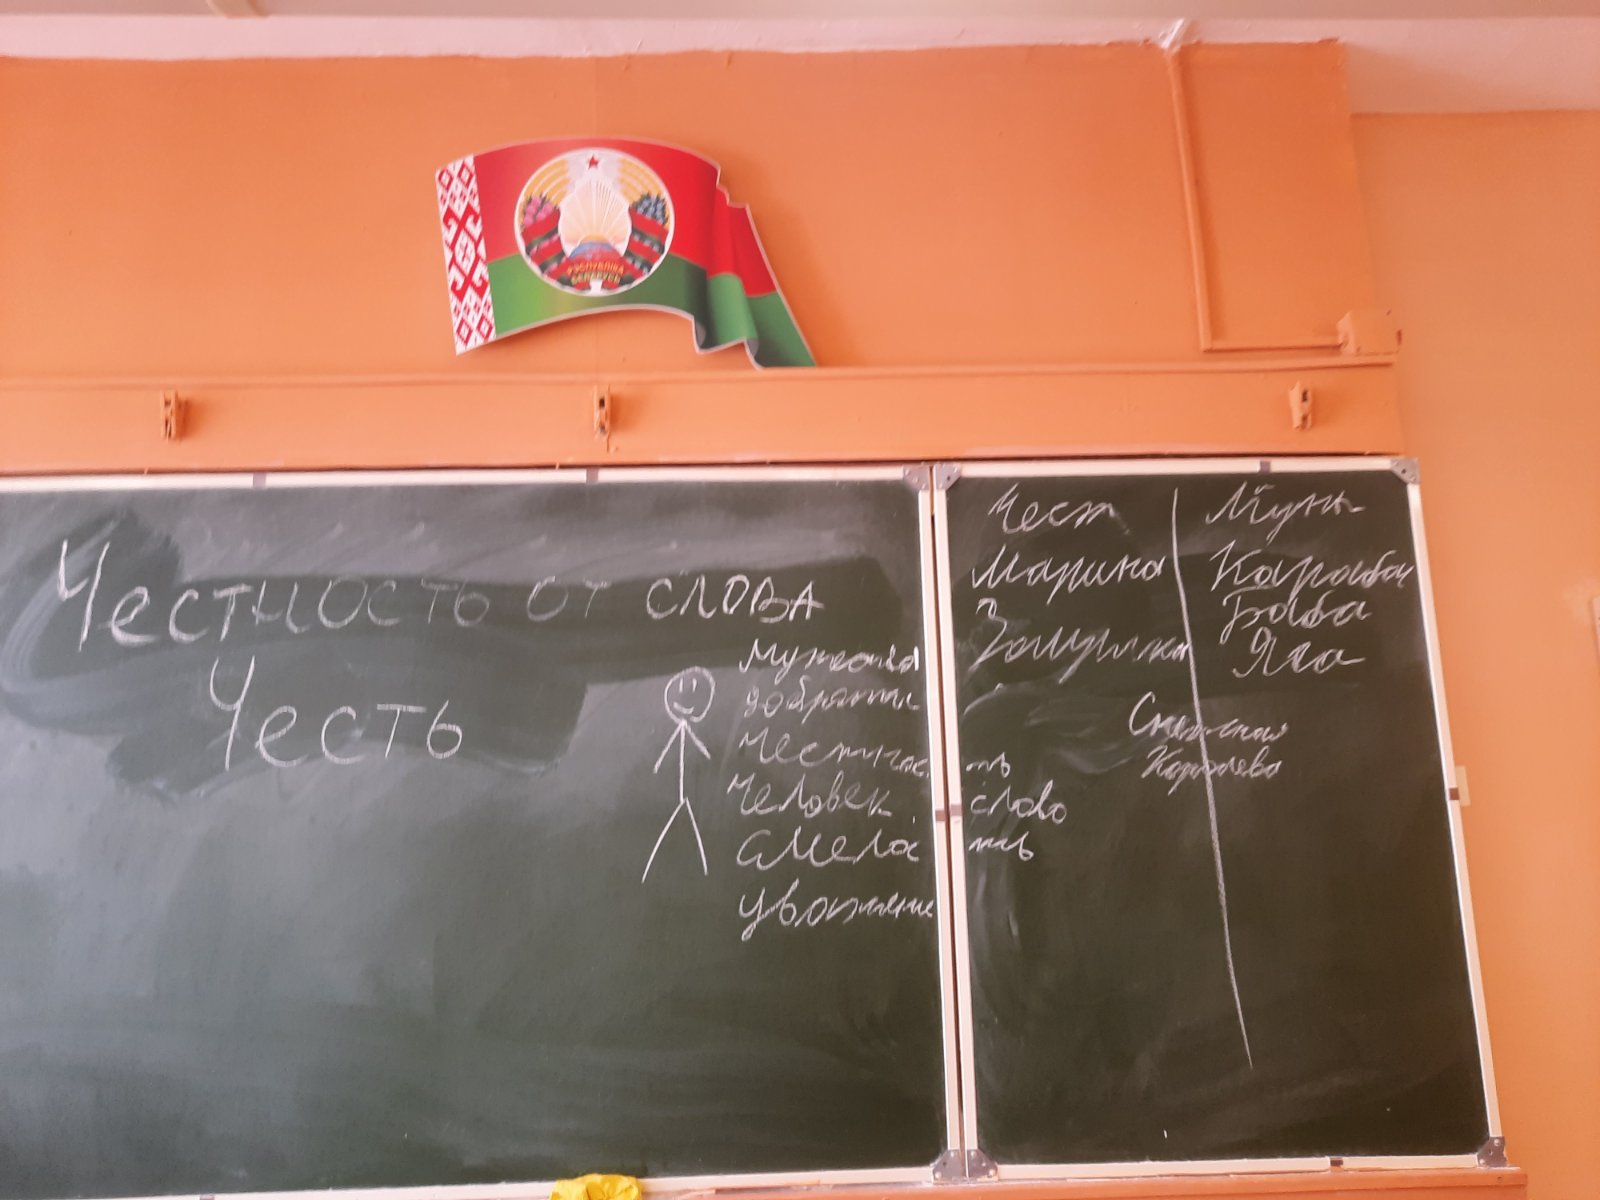 РЭСПУБЛІКА
БЕЛАРУСЬ
Честность от слова
Честь
Мужество
доброта
Честность
Человек слово
Смелость
уважение
Чест
Марина
Золушка
Караба
Баба
Яга
Снежная
Королева